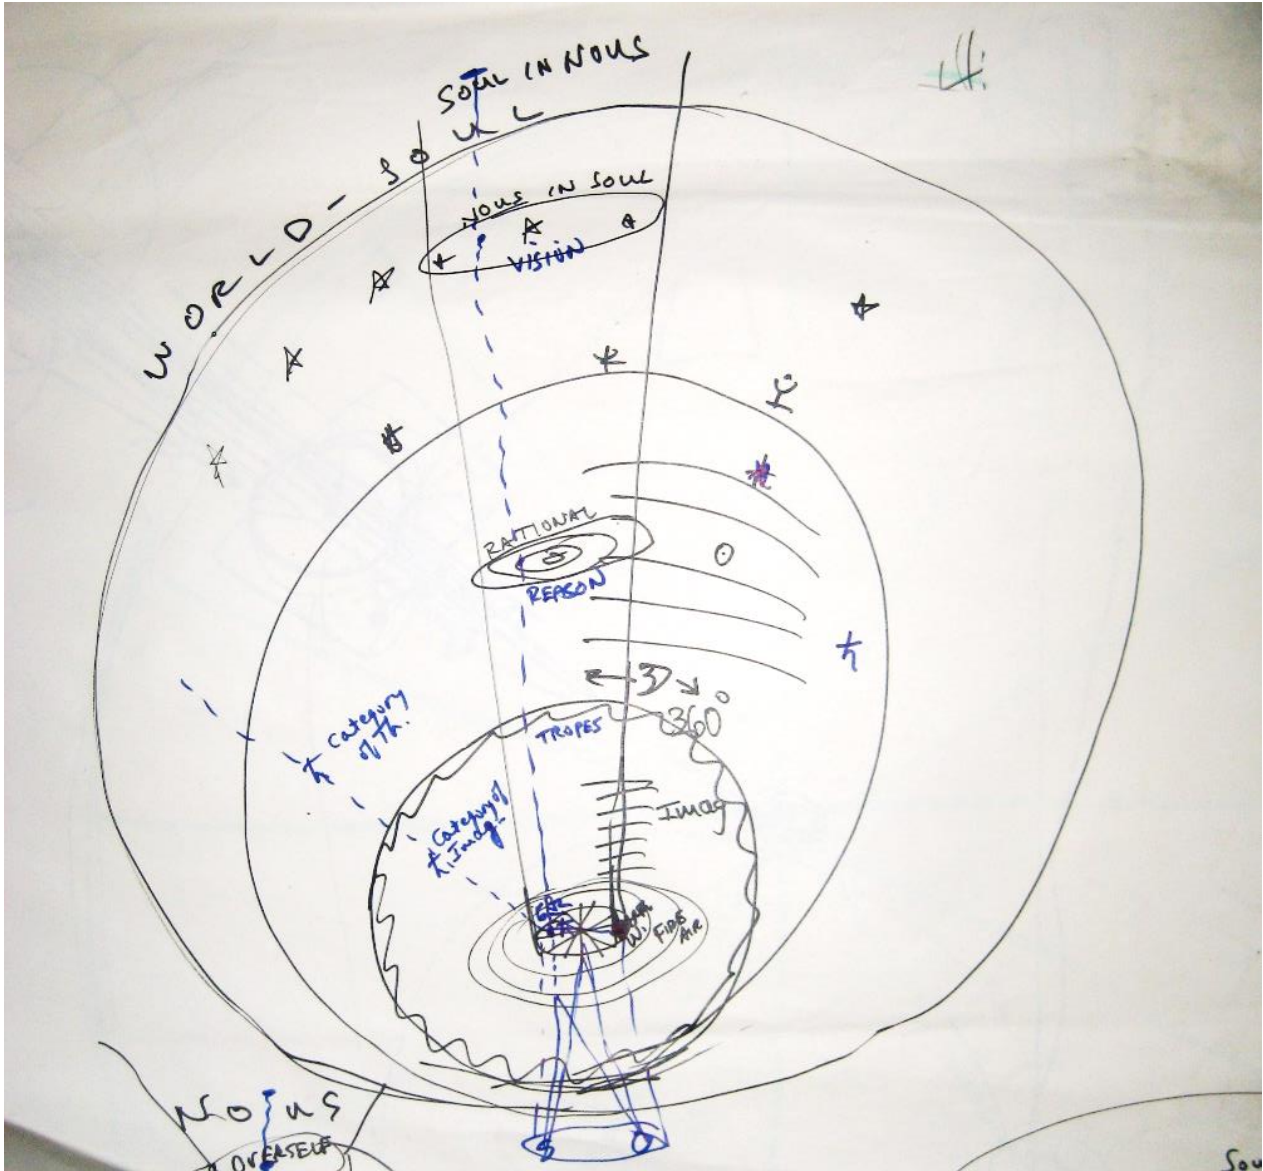 SOUL IN NOUS
WORLD-SOUL
NOUS IN SOUL
VISION
RATIONAL
REASON
3D
360°
TROPES
Category
of Th.
Category of
Imag.
Imag
FIRE
AIR
S
O
NOUS
OVERSELF
Sou